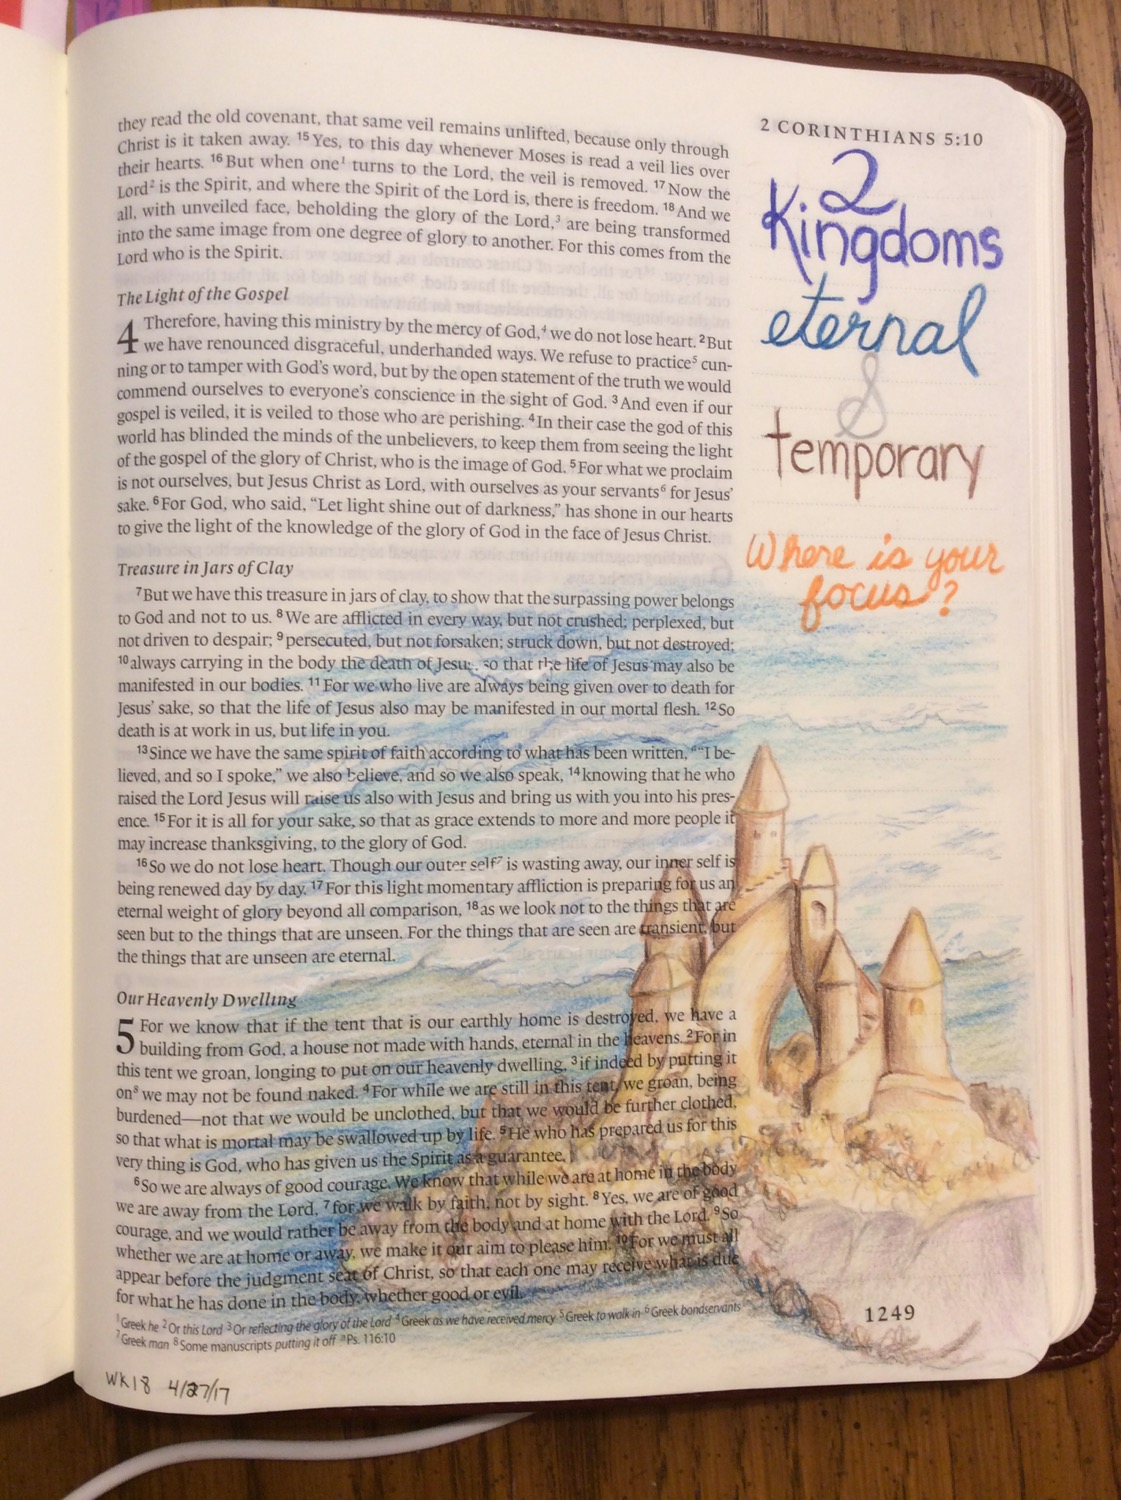 12
they read the old covenant, that same veil remains unlifted, because only through
Christ is it taken away. 15 Yes, to this day whenever Moses is read a veil lies over
their hearts. 16 But when one1 turns to the Lord, the veil is removed. 17 Now the
Lord2 is the Spirit, and where the Spirit of the Lord is, there is freedom. 18 And we
all, with unveiled face, beholding the glory of the Lord,3 are being transformed
into the same image from one degree of glory to another. For this comes from the
Lord who is the Spirit.
The Light of the Gospel
4 Therefore, having this ministry by the mercy of God,4 we do not lose heart. 2 But
we have renounced disgraceful, underhanded ways. We refuse to practice5 cun-
ning or to tamper with God's word, but by the open statement of the truth we would
commend ourselves to everyone's conscience in the sight of God. 3 And even if our
gospel is veiled, it is veiled to those who are perishing. 4 In their case the god of this
world has blinded the minds of the unbelievers, to keep them from seeing the light
of the gospel of the glory of Christ, who is the image of God. 5 For what we proclaim
is not ourselves, but Jesus Christ as Lord, with ourselves as your servants6 for Jesus'
sake. 6 For God, who said, "Let light shine out of darkness," has shone in our hearts
to give the light of the knowledge of the glory of God in the face of Jesus Christ.
Treasure in Jars of Clay
7 But we have this treasure in jars of clay, to show that the surpassing power belongs
to God and not to us. 8 We are afflicted in every way, but not crushed; perplexed, but
not driven to despair; 9 persecuted, but not forsaken; struck down, but not destroyed;
10 always carrying in the body the death of Jesus, so that the life of Jesus may also be
manifested in our bodies. 11 For we who live are always being given over to death for
Jesus' sake, so that the life of Jesus also may be manifested in our mortal flesh. 12 So
death is at work in us, but life in you.
13 Since we have the same spirit of faith according to what has been written, a"I be-
lieved, and so I spoke," we also believe, and so we also speak, 14 knowing that he who
raised the Lord Jesus will raise us also with Jesus and bring us with you into his pres-
ence. 15 For it is all for your sake, so that as grace extends to more and more people it
may increase thanksgiving, to the glory of God.
16 So we do not lose heart. Though our outer self7 is wasting away, our inner self is
being renewed day by day. 17 For this light momentary affliction is preparing for us an
eternal weight of glory beyond all comparison, 18 as we look not to the things that are
seen but to the things that are unseen. For the things that are seen are transient, but
the things that are unseen are eternal.
Our Heavenly Dwelling
5 For we know that if the tent that is our earthly home is destroyed, we have a
building from God, a house not made with hands, eternal in the heavens. 2 For in
this tent we groan, longing to put on our heavenly dwelling, 3 if indeed by putting it
on8 we may not be found naked. 4 For while we are still in this tent, we groan, being
burdened—not that we would be unclothed, but that we would be further clothed,
so that what is mortal may be swallowed up by life. 5 He who has prepared us for this
very thing is God, who has given us the Spirit as a guarantee.
6 So we are always of good courage. We know that while we are at home in the body
we are away from the Lord, 7 for we walk by faith, not by sight. 8 Yes, we are of good
courage, and we would rather be away from the body and at home with the Lord. 9 So
whether we are at home or away, we make it our aim to please him. 10 For we must all
appear before the judgment seat of Christ, so that each one may receive what is due
for what he has done in the body, whether good or evil.
1 Greek he 2 Or this Lord 3 Or reflecting the glory of the Lord 4 Greek as we have received mercy 5 Greek to walk in 6 Greek bondservants
7 Greek man 8 Some manuscripts putting it off a Ps. 116:10
WK18 4/27/17
2 CORINTHIANS 5:10
2
Kingdoms
eternal
&
temporary
Where is your
focus?
1249